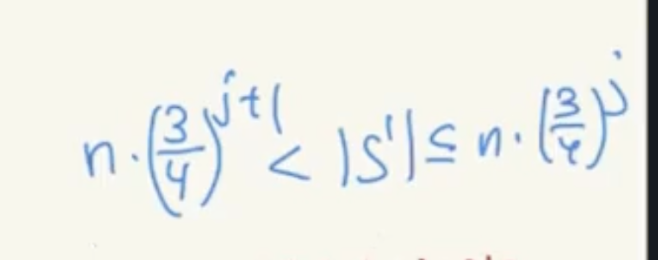 n · (3/4)^{j+1} < |S'| ≤ n · (3/4)^j